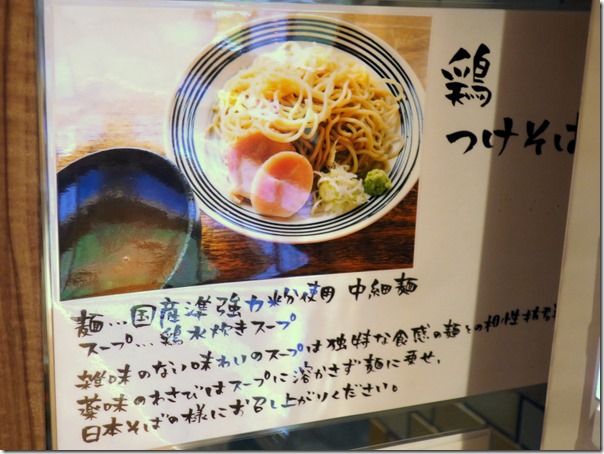 鶏
つけそば
麺…国産準強力粉使用 中細麺
スープ…鶏水炊きスープ
雑味のない味わいのスープは独特な食感の麺との相性抜
薬味のわさびはスープに溶かさず麺に乗せ、
日本そばの様にお召し上がりください。